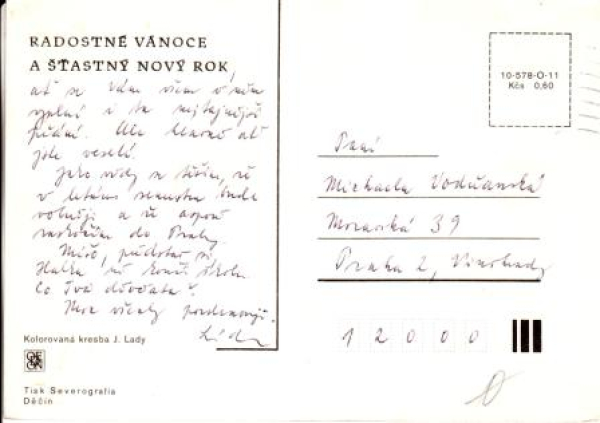 RADOSTNÉ VÁNOCE
A ŠŤASTNÝ NOVÝ ROK,
ať se Vám všem v něm
vyplní i ta nejtajnější
přání. Ale hlavně ať
jste veselí.
Jako vždy se těším, že
v letním semestru bude
volněji a že aspoň
zaskočím do Prahy.
Míšo, představ si
Halka už končí školu.
Co Tvá děvčata?
Moc všechny pozdravuji.
Lída
Kolorovaná kresba J. Lady
Tisk Severografia
Děčín
10-578-O-11
Kčs 0,60
Paní
Michaela Vodňanská
Moravská 39
Praha 2, Vinohrady
12000